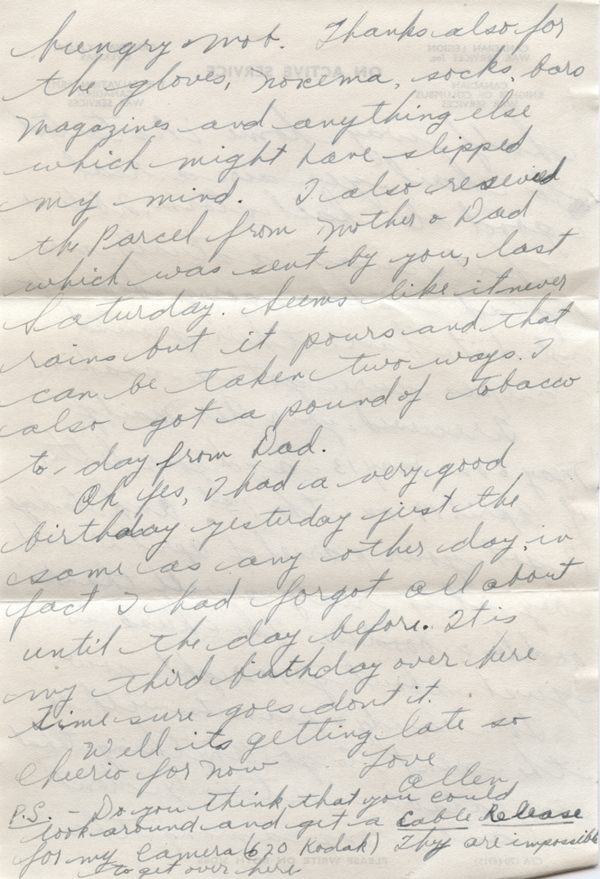 hungry mob. Thanks also for
the gloves, noxema, socks, bars
magazines and anything else
which might have slipped
my mind. I also reseived
the Parcel from Mother & Dad
which was sent by you, last
Saturday. Seems like it never
rains but it pours and that
can be taken two ways. I
also got a pound of tobacco
to-day from Dad.
Oh yes, I had a very good
birthday yesterday just the
same as any other day, in
fact I had forgot all about
until the day before. It is
my third birthday over here
Time sure goes dont it.
Well its getting late so
Cheerio for now
Love
Allen
P.S. - Do you think that you could
look around and get a Cable Release
for my camera (620 Kodak) Thy are impossible
to get over here